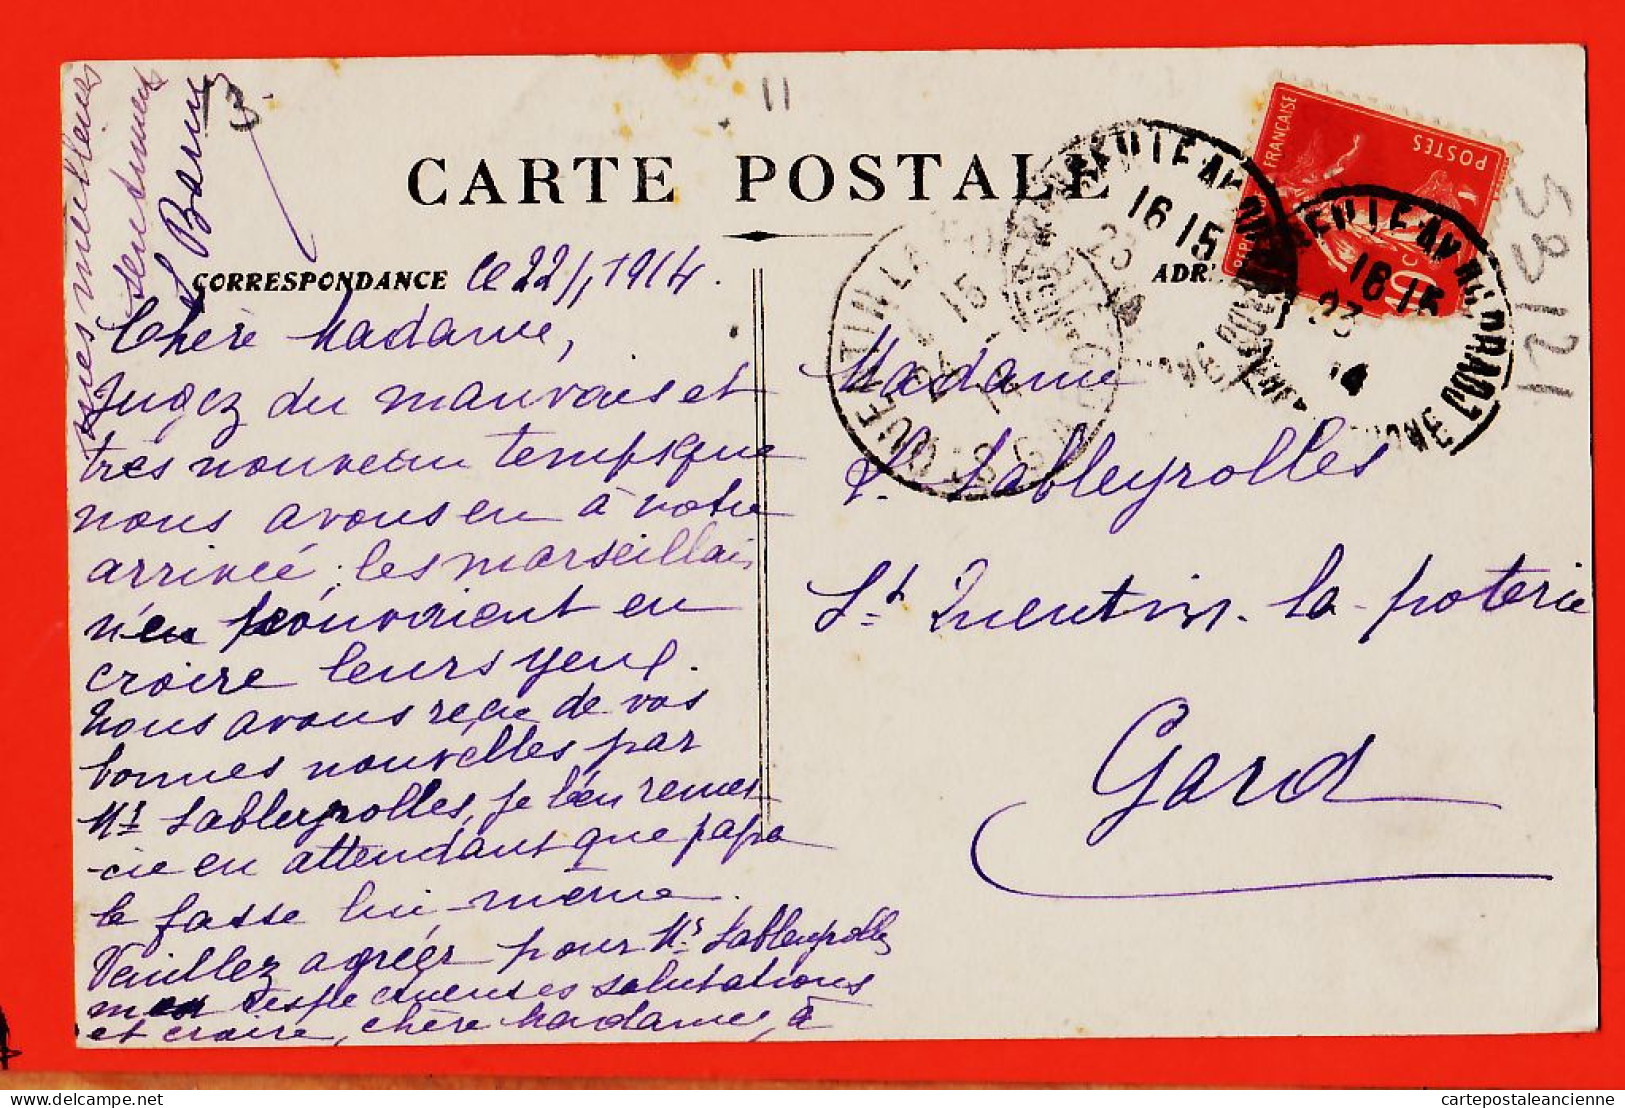 CARTE POSTALE
CORRESPONDANCE
le 22/1 1914.
Chère Madame,
Jugez du mauvais et
très nouveau temps que
nous avons eu à notre
arrivée; les marseillais
n'en pouvaient en
croire leurs yeux.
Nous avons reçu de vos
bonnes nouvelles par
Mr Sableyrolles, je l'en remer
-cie en attendant que papa
le fasse lui-même.
Veuillez agréer pour Mr Sableyrolles
mes respectueuses salutations
et croire, chère Madame, à
mes meilleurs
sentiments
Madame
Sableyrolles
St Quentin-la-poterie
Gard
ADR
16 15
23
14
16 15
23
14
FRANÇAISE
POSTES
10
C
11
58121
cartepostaleancienne